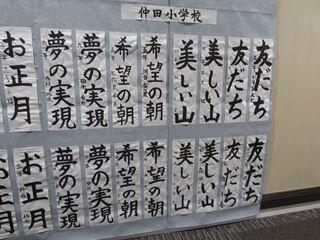 仲田小学校
友だち
友だち
美しい山
美しい山
希望の朝
希望の朝
夢の実現
夢の実現
お正月
友だち
友だち
美しい山
美しい山
希望の朝
希望の朝
夢の実現
夢の実現
お正月